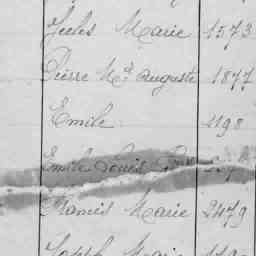 Jules Marie 1573
Pierre Me Auguste 1877
Emile 1198
Emile Louis
Francis Marie 2479
Joseph Marie